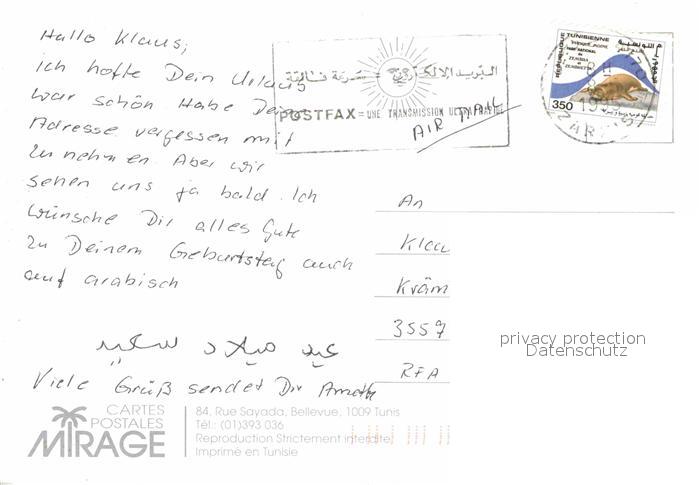 Hallo Klaus,
ich hoffe Dein Urlaub
war schön Habe Deine
Adresse vergessen mit
zu nehmen. Aber wir
sehen uns ja bald. Ich
wünsche Dir alles Gute
zu Deinem Geburtstag auch
auf arabisch
عيد ميلاد سعيد
Viele Grüß sendet Dir
البريد الالكتروني = سرعة فائقة
POSTFAX = UNE TRANSMISSION ULTRA RAPIDE
AIR MAIL
REPUBLIQUE TUNISIENNE
350
ZARZIS
An
Klau
Kräm
3557
RFA
privacy protection
Datenschutz
CARTES
POSTALES
MIRAGE
84, Rue Sayada, Bellevue, 1009 Tunis
Tél.: (01)393 036
Reproduction Strictement interdite,
Imprimé en Tunisie